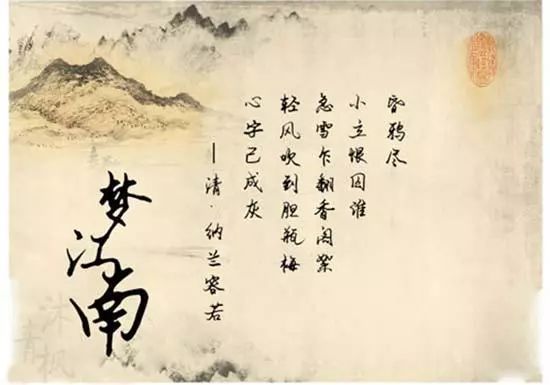 昏鸦尽
小立恨因谁
急雪乍翻香阁絮
轻风吹到胆瓶梅
心字已成灰
—清·纳兰容若
梦江南